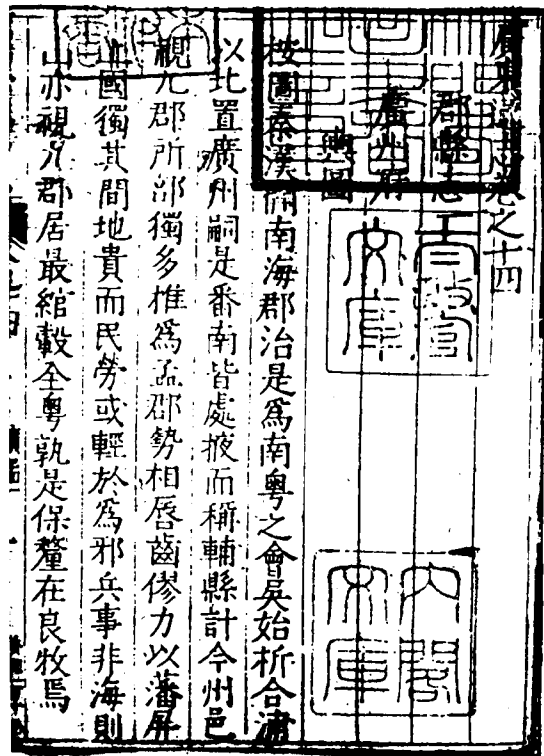 廣東通志卷之十四
郡縣志一
廣州府
輿圖
按圖秦漢開南海郡治是爲南粤之會吳始析合浦
以北置廣州嗣是番南皆處掖而稱輔縣計今州邑
視九郡所部獨多推爲孟郡勢相唇齒僇力以藩屏
國獨其間地貴而民勞或輕於爲邪兵事非海則
山亦視九郡居最綰轂全粤孰是保釐在良牧焉
內閣
文庫
文庫